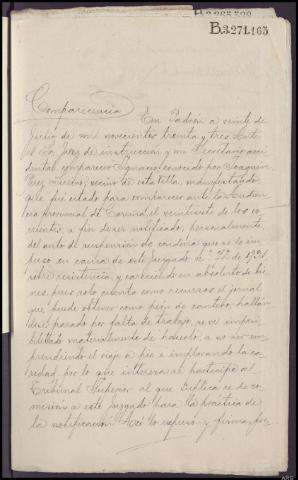 B.3.271.165
Comparecencia En Padrón a veinte de
Julio de mil novecientos treinta y tres. Ante
el Sr. Juez de instrucción y mi Secretario acci-
dental, compareció Ignacio, conocido por Joaquin
Perez, vecino de esta Villa, manifestando:
que fué citado para comparecer ante la Audien-
cia provincial de Coruña, el veintisiete de los co-
rrientes, a fin de ser notificado, personalmente,
del auto de suspensión de condena que se le im-
puso en causa de este Juzgado nº de 1931,
sobre resistencia, y careciendo en absoluto de bie-
nes, pues solo cuenta como recursos el jornal
que puede obtener como peón de cantero, hallán-
dose parado por falta de trabajo, se ve imposi-
bilitado materialmente de hacerlo, a no ser em-
prendiendo el viaje a pie e implorando la ca-
ridad, por lo que interesa se participe al
Tribunal Superior al que suplica se dé co-
misión a este Juzgado para la práctica de
la notificación. Así lo expuso y firma, por